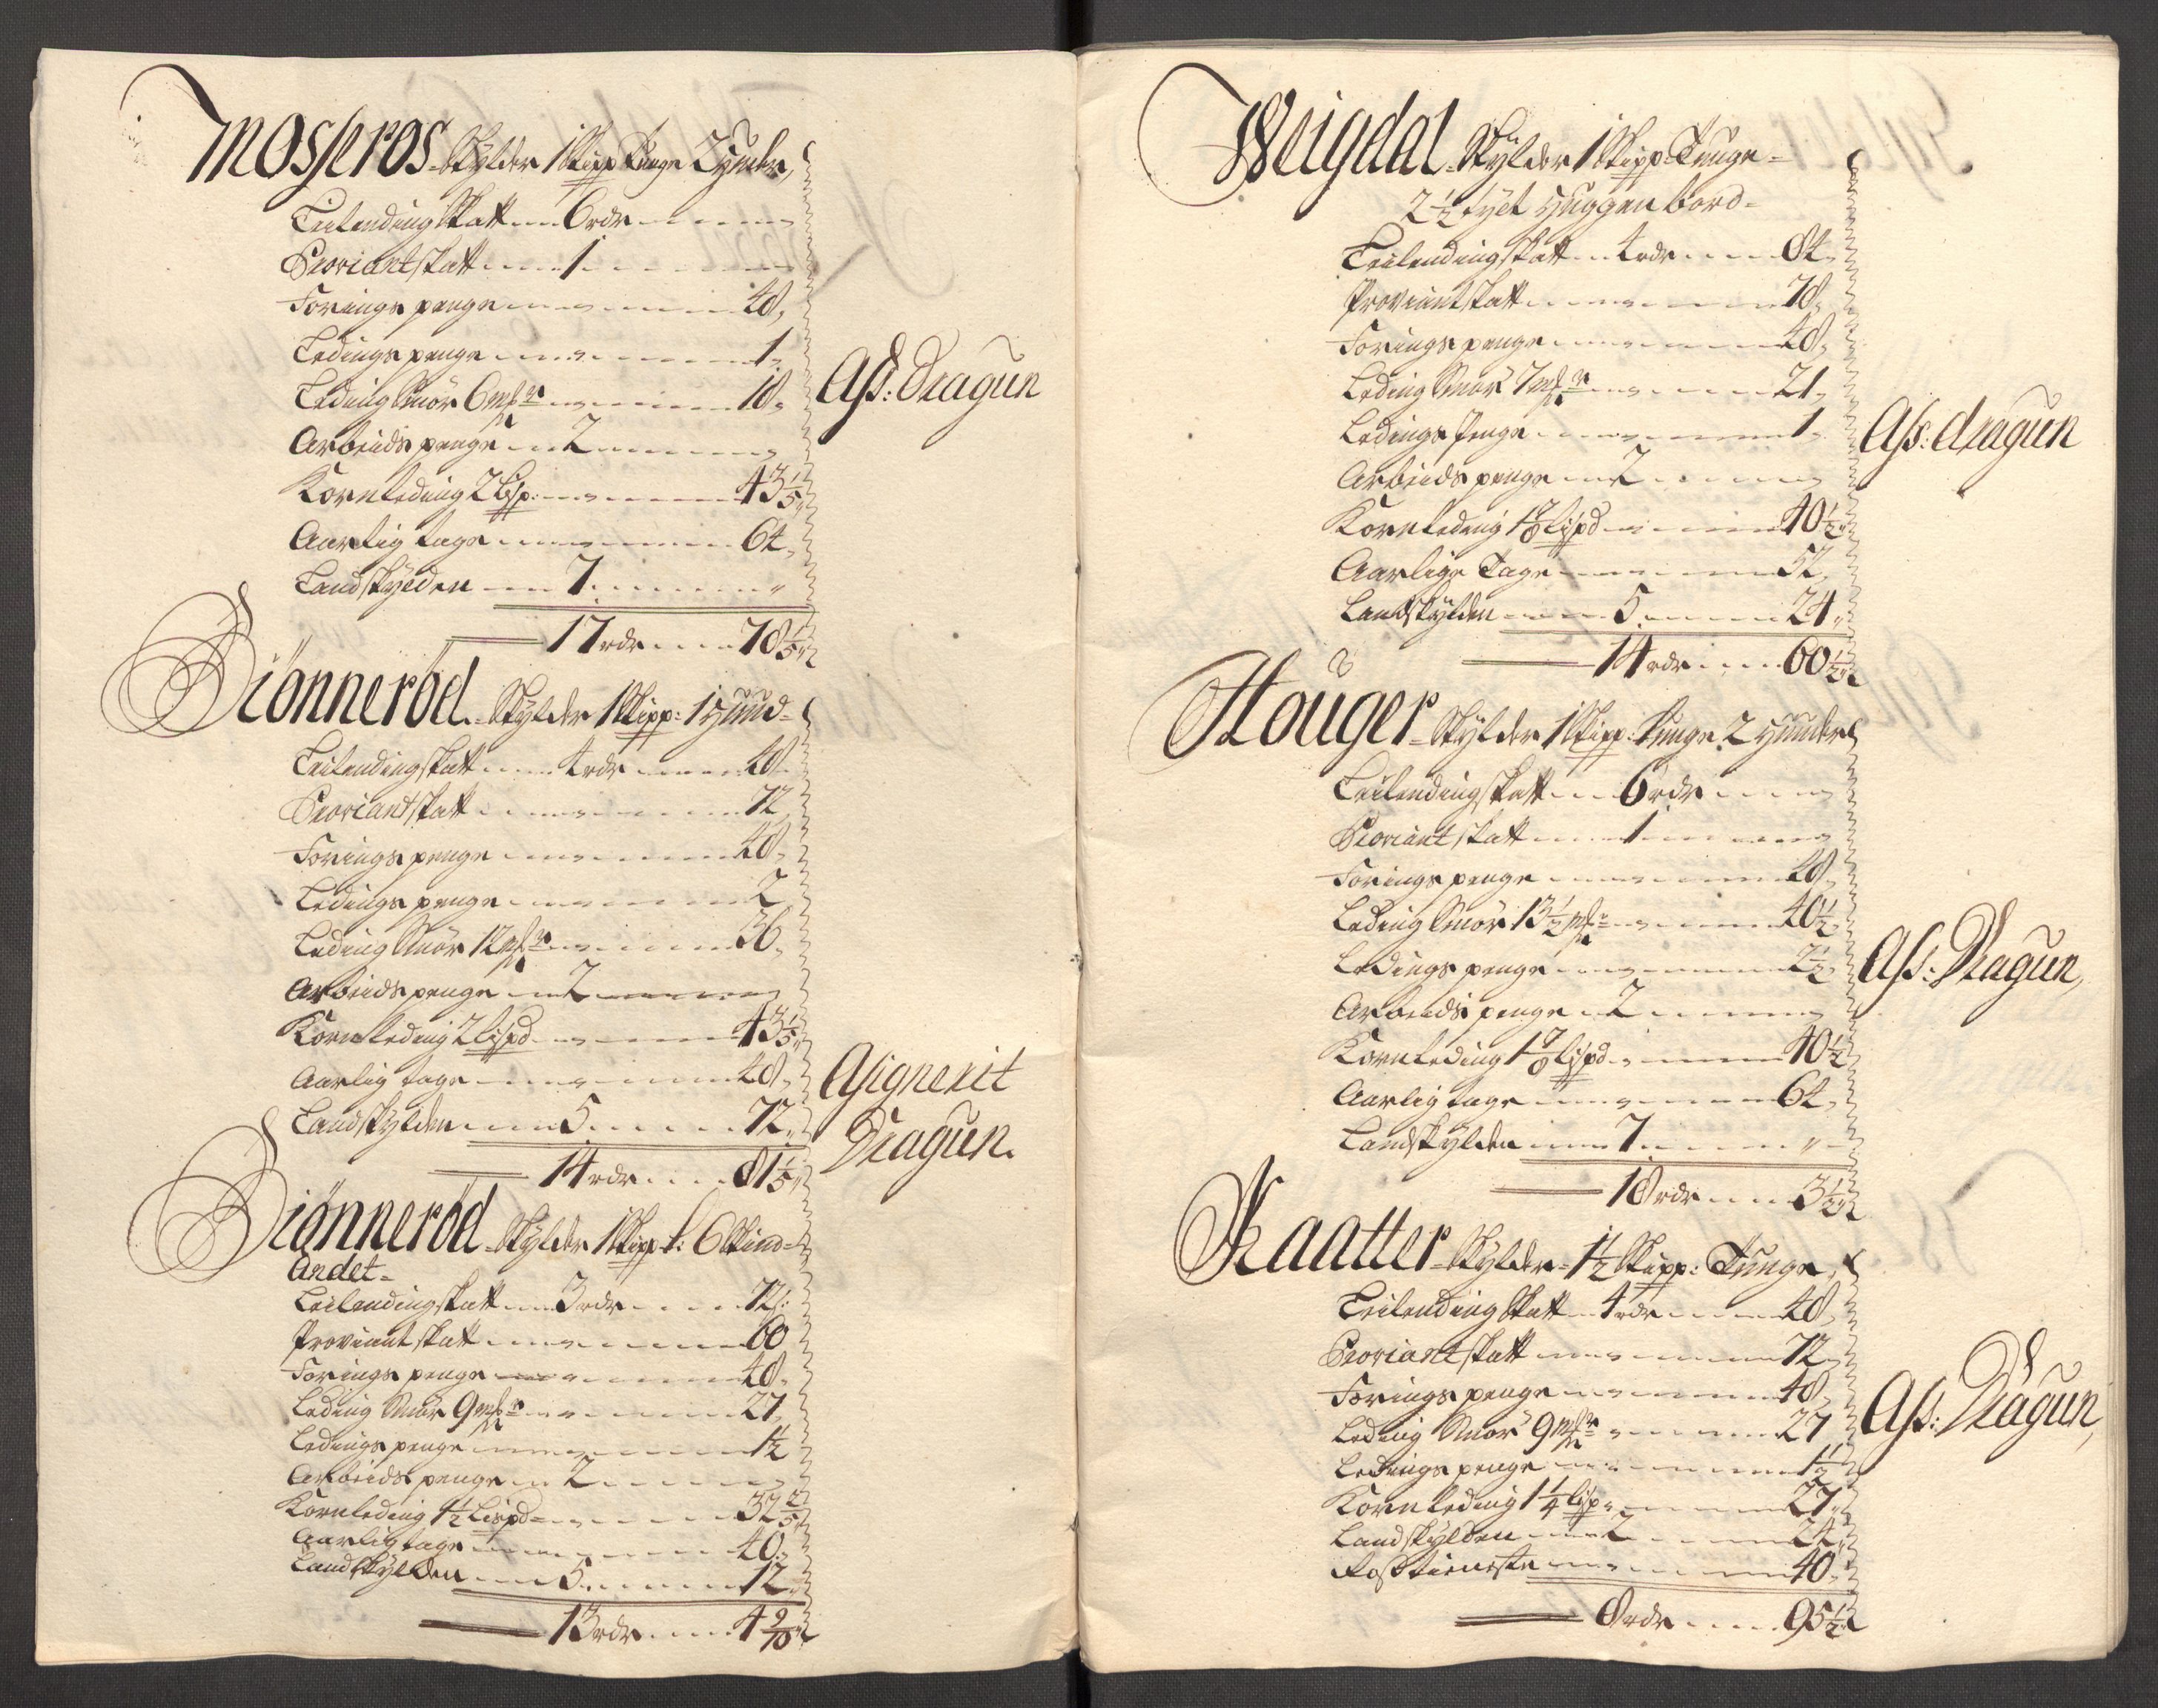 Mosseros Skylder 1 Skipp Tunge 2 Huuder,
Leilending Skatt 6 rdr
Proviantskatt 1
Forings penge 48
Ledings penge 1
Leding Smör 6 mk 18
Arbeids penge 2
Kornleding 2 Lisp: 43 1/5
Aarlig tage 64
Landskylden 7 "
17 rdr 78 1/5
Ass: Dragun
Biönneröd Skylder 1 Skipp: 1 Huud
Leilendingskatt 4 rdr 48
Proviantskatt 72
Forings penge 48
Ledings penge 2
Leding Smör 12 mk 36
Arbeids penge 2
Kornleding 2 Lispd 43 1/5
Aarlig tage 48
Landskylden 5 72
14 rdr 81 1/5
Asignerit
Dragun.
Biönneröd Skylder 1 Skipp t: 6 Skind
Andet
Leilendingskatt 3 rdr 72
Proviantskatt 60
Forings penge 48
Leding Smör 9 mk 27
Ledings penge 1 1/2
Arbeids penge 2
Kornleding 1 1/2 Lispd 32 2/5
Aarlig tage 40
Landskylden 5 12
13 rdr 4 9/10
Weigdal Skylder 1 Skipp Tunge
2 1/2 tylt Huggen bord
Leilendingskatt 4 rdr 84
Proviantskatt 78
Forings penge 48
Leding Smör 7 mk 21
Ledings Penge 1
Arbeids penge 2
Kornleding 1 7/8 Lispd 40 1/2
Aarlige Tage 52
Landskylden 5 24
14 rdr 60 1/2
Ass: dragun
Houger Skylder 1 Skipp: Tunge 2 Huuder
Leilendingskatt 6 rdr
Proviantskatt 1
Forings penge 48
Leding Smör 13 1/2 mk 40 1/2
Ledings penge 2 1/2
Arbeids penge 2
Kornleding 1 7/8 Lispd 40 1/2
Aarlig tage 64
Landskylden 7 "
18 rdr 3 1/2
Ass: Dragun,
Kaatter Skylder 1 1/2 Skipp: Tunge
Leilending Skatt 4 rdr 48
Proviantskatt 72
Forings penge 48
Leding Smör 9 mk 27
Ledings penge 1 1/2
Kornleding 1 1/4 Lisp 27
Landskylden 2 24
Rosstieneste 40
8 rdr 95 1/2
Ass: Dragun,